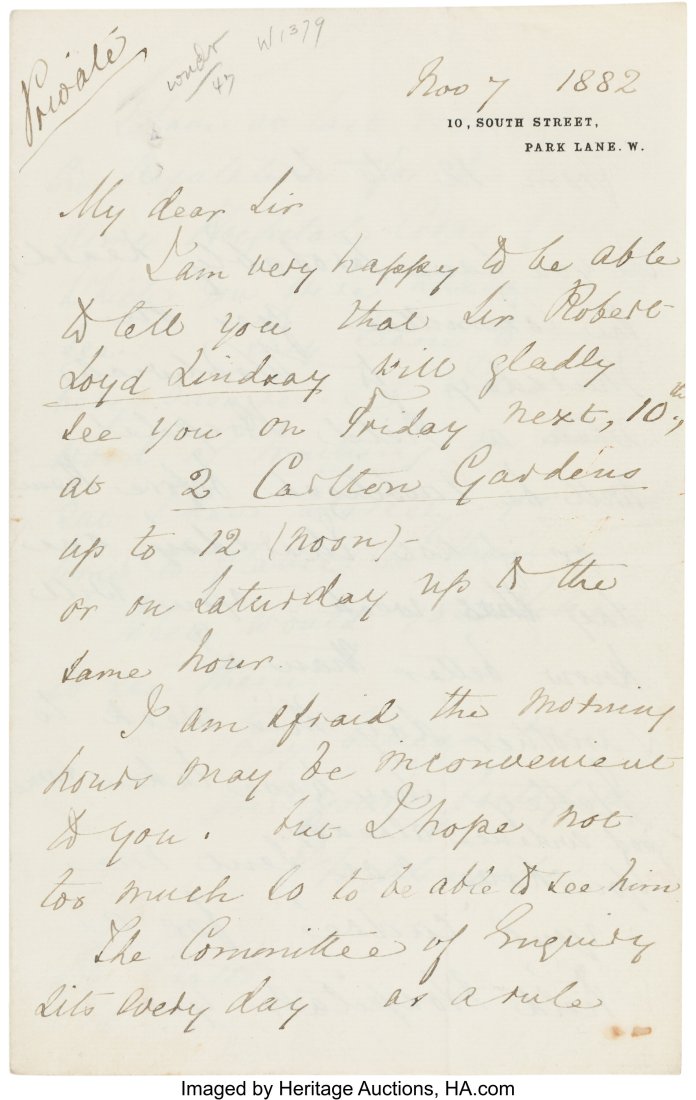 Private
W1379
under
47
Nov 7 1882
10, SOUTH STREET,
PARK LANE. W.
My dear Sir
I am very happy to be able
to tell you that Sir Robert
Loyd Lindsay will gladly
see you on Friday next, 10th,
at 2 Carlton Gardens
up to 12 (noon) -
or on Saturday up to the
same hour.
I am afraid the morning
hours may be inconvenient
to you. but I hope not
too much so to be able to see him
The Committee of Enquiry
sits every day as a rule
Imaged by Heritage Auctions, HA.com